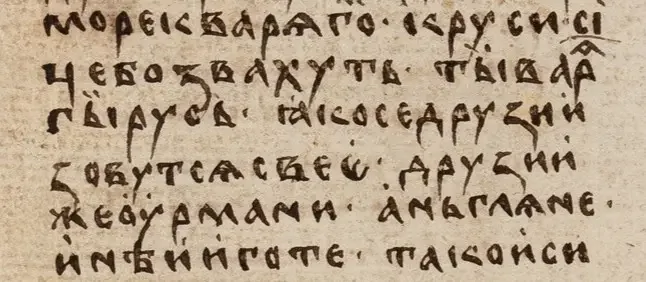 морекварѧго · к руси · сі
це бо звахуть · тъıи варѧ
гъı русь · ꙗко се друзии
зобутсѧ свеѡ · друзии
же ѹрмани · аньглѧне ·
инѣи и готе · тако и си